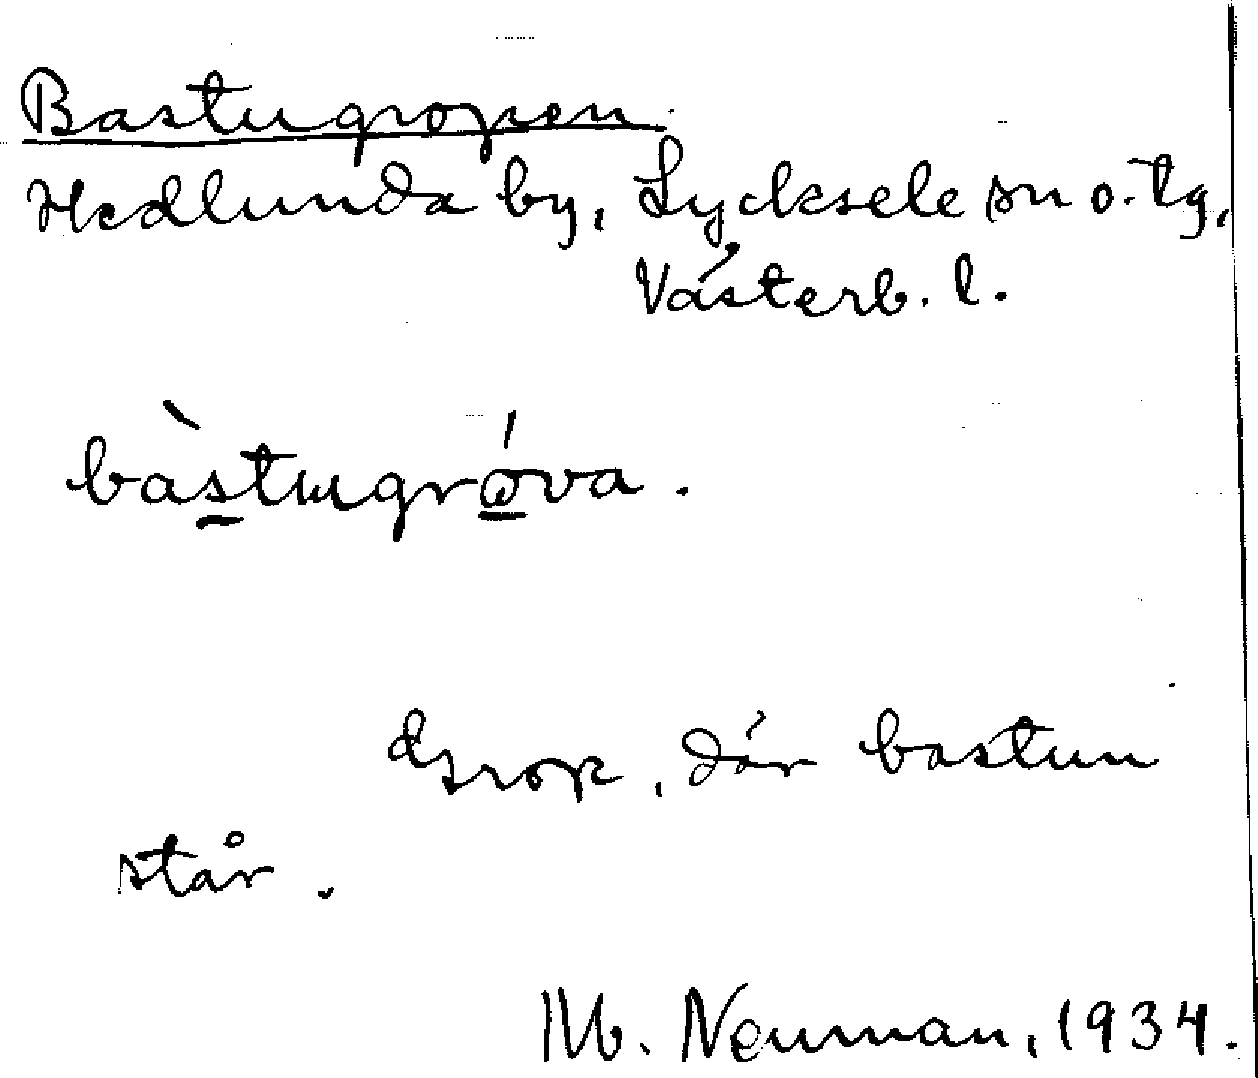 Bastugropen
Hedlunda by, Lycksele sn o. tg,
Västerb. l.
bàstugróva.
Grop, där bastun
står.
M. Neuman, 1934.